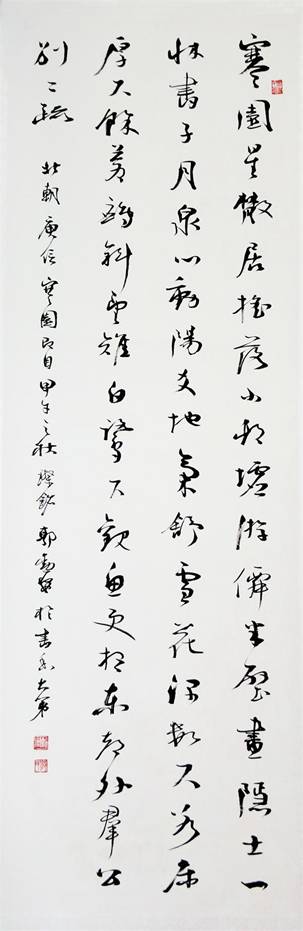 寒園星散居搖落小邨墟游僊半壁畫隱士一
牀書子月泉心動陽爻地氣舒雪花深數尺冰床
厚尺餘蒼鷹斜望雉白鷺下觀魚更想東都外羣公
別二疏 北朝庾信寒園即目甲午之秋 郭 於書香大第